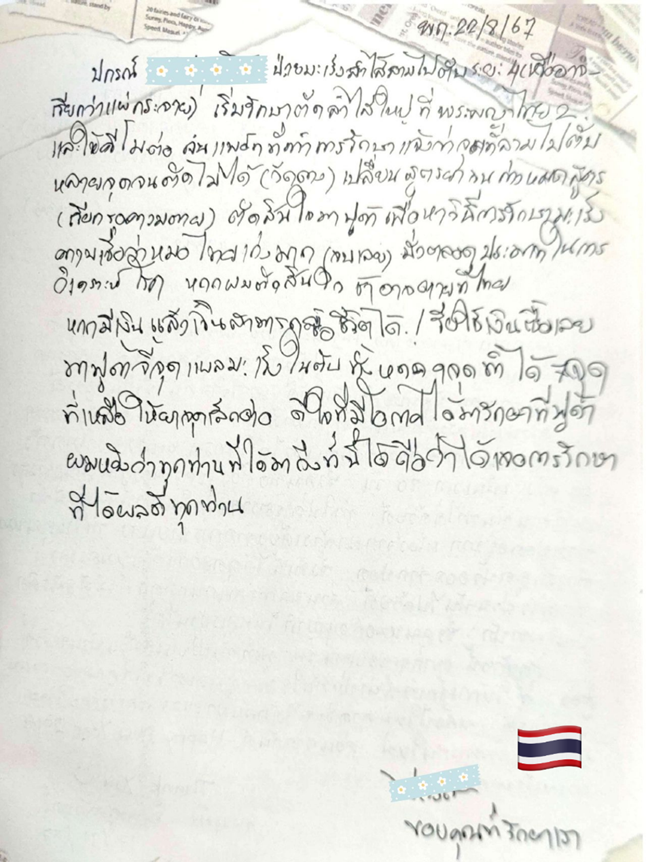 พฤ. 22/8/67
ปกรณ์ ป่วยมะเร็งลำไส้ลามไปตับระยะ 4 (หรืออาจ
เรียกว่าแพร่กระจาย) เริ่มรักษาตัดลำไส้ใหญ่ ที่ พระพญาไทย 2
และให้คีโมต่อ จนแพทย์ที่ทำการรักษาแจ้งว่า ลามไปตับ
หลายจุดจนตัดไม่ได้ เปลี่ยนสูตรยา จนกำหมดสูตร
ตัดสินใจมาฟูด้า เพื่อหาวิธีการรักษามะเร็ง
ความเชื่อว่าหมอไทยเก่งมาก ประมาทในการ
วิเคราะห์ โรค หากผมตัดสินใจ ช้าอาจตายที่ไทย
หากมีเงิน แล้วเงินสามารถซื้อชีวิตได้ ! ใช้เงินซื้อเลย
มาฟูด้าจี้จุดแผลมะเร็งในตับ ทั้งหมด 9 จุด ทำได้ 7 จุด
ที่เหลือให้ยา ดีใจที่มีโอกาสได้มารักษาที่ฟูด้า
ผมหวังว่าทุกท่านที่ได้มาถึงที่นี่ได้ถือว่าได้เจอการรักษา
ที่ได้ผลดีทุกท่าน
ขอบคุณที่รักษาเรา